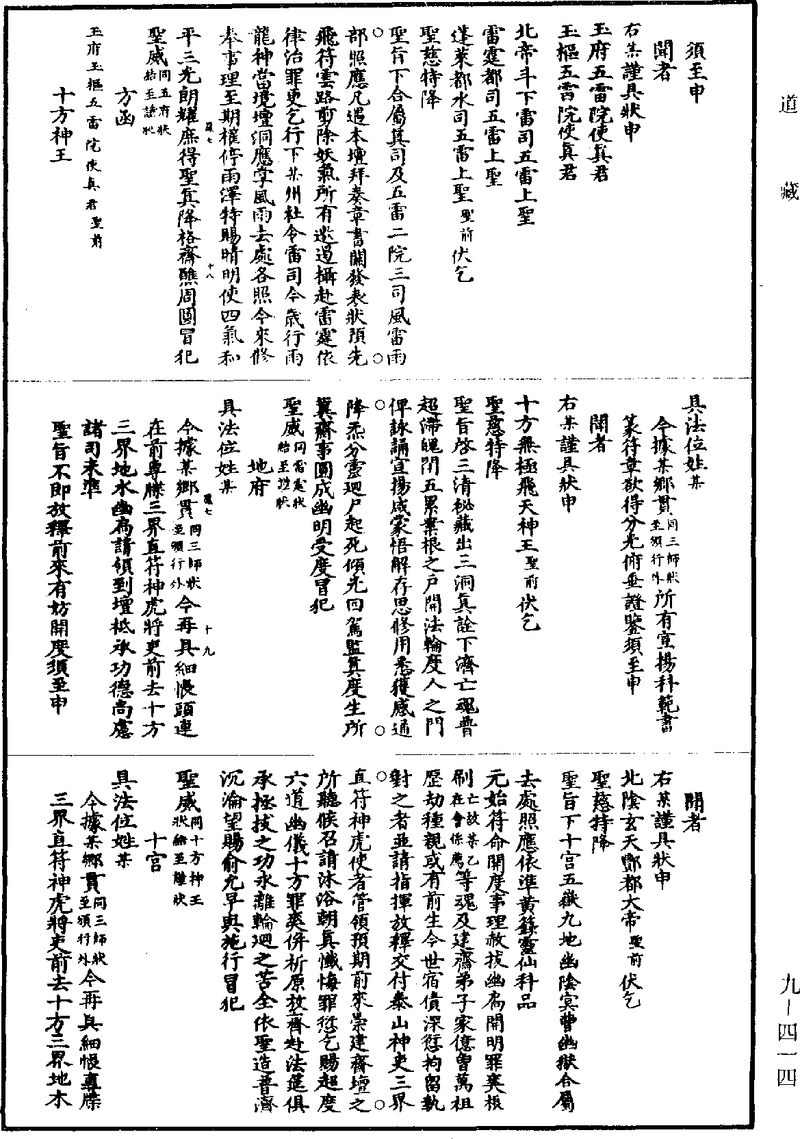 道藏
須至申
聞者
右某謹具狀申
玉府五雷院使真君
玉樞五雷院使真君
北帝斗下雷司五雷上聖
雷霆都司五雷上聖
蓬萊都水司五雷上聖聖前伏乞
聖慈特降
聖旨下合屬真司及五雷二院三司風雷雨
部照應凡遇本壇拜奏章書關發表狀預先
飛符雲路剪除妖氣所有邀遏攝赴雷霆依
律治罪更乞行下某州社令雷司今歲行雨
龍神當境壇洞應掌風雨去處各照今來修
奉事理至期權停雨澤特賜晴明使四氣和
平三光朗耀庶得聖真降格齋醮周圓冒犯
聖威同五府狀始至謹狀
方函
玉府玉樞五雷院使真君聖前
十方神王
具法位姓某
今據某鄉貫同三師狀至頒行外所有宣揚科範書
篆符章欲得分光俯垂證鑒須至申
聞者
右某謹具狀申
十方無極飛天神王聖前伏乞
聖慈特降
聖旨啓三清秘藏出三洞真詮下濟亡魂普
超滯魄閉五累業根之戶開法輪度人之門
俾詠誦宣揚咸蒙悟解存思修用悉獲感通
降炁分靈迴尸起死傾光回駕監真度生所
冀齋事圓成幽明受度冒犯
聖威同雷霆狀始至謹狀
地府
具法位姓某
今據某鄉貫同三師狀至頒行外今再具細悵頭連
在前專牒三界直符神虎將吏前去十方
三界地水幽扃請領到壇祗承功德尚慮
諸司未準
聖旨不即放釋前來有妨開度須至申
聞者
右某謹具狀申
北陰玄天酆都大帝聖前伏乞
聖慈特降
聖旨下十宮五嶽九地幽陰冥曹幽獄合屬
去處照應依準黃籙靈仙科品
元始符命開度事理赦拔幽扃開明罪爽根
刷亡故某乙在會係薦等魂及建齋弟子家億曾萬祖
歷劫種親或有前生今世宿債深愆拘留執
對之者並請指揮放釋交付泰山神吏三界
直符神虎使者管領預期前來崇建齋壇之
所聽候召請沐浴朝真懺悔罪愆乞賜超度
六道幽儀十方罪爽併祈原放齊赴法筵俱
承拯拔之功永離輪迴之苦全依聖造普濟
沉淪望賜俞允早與施行冒犯
聖威同十方神王狀始至謹狀
十宮
具法位姓某
今據某鄉貫同三師狀至頒行外今再具細悵專牒
三界直符神虎將吏前去十方三界地水
九－四一四